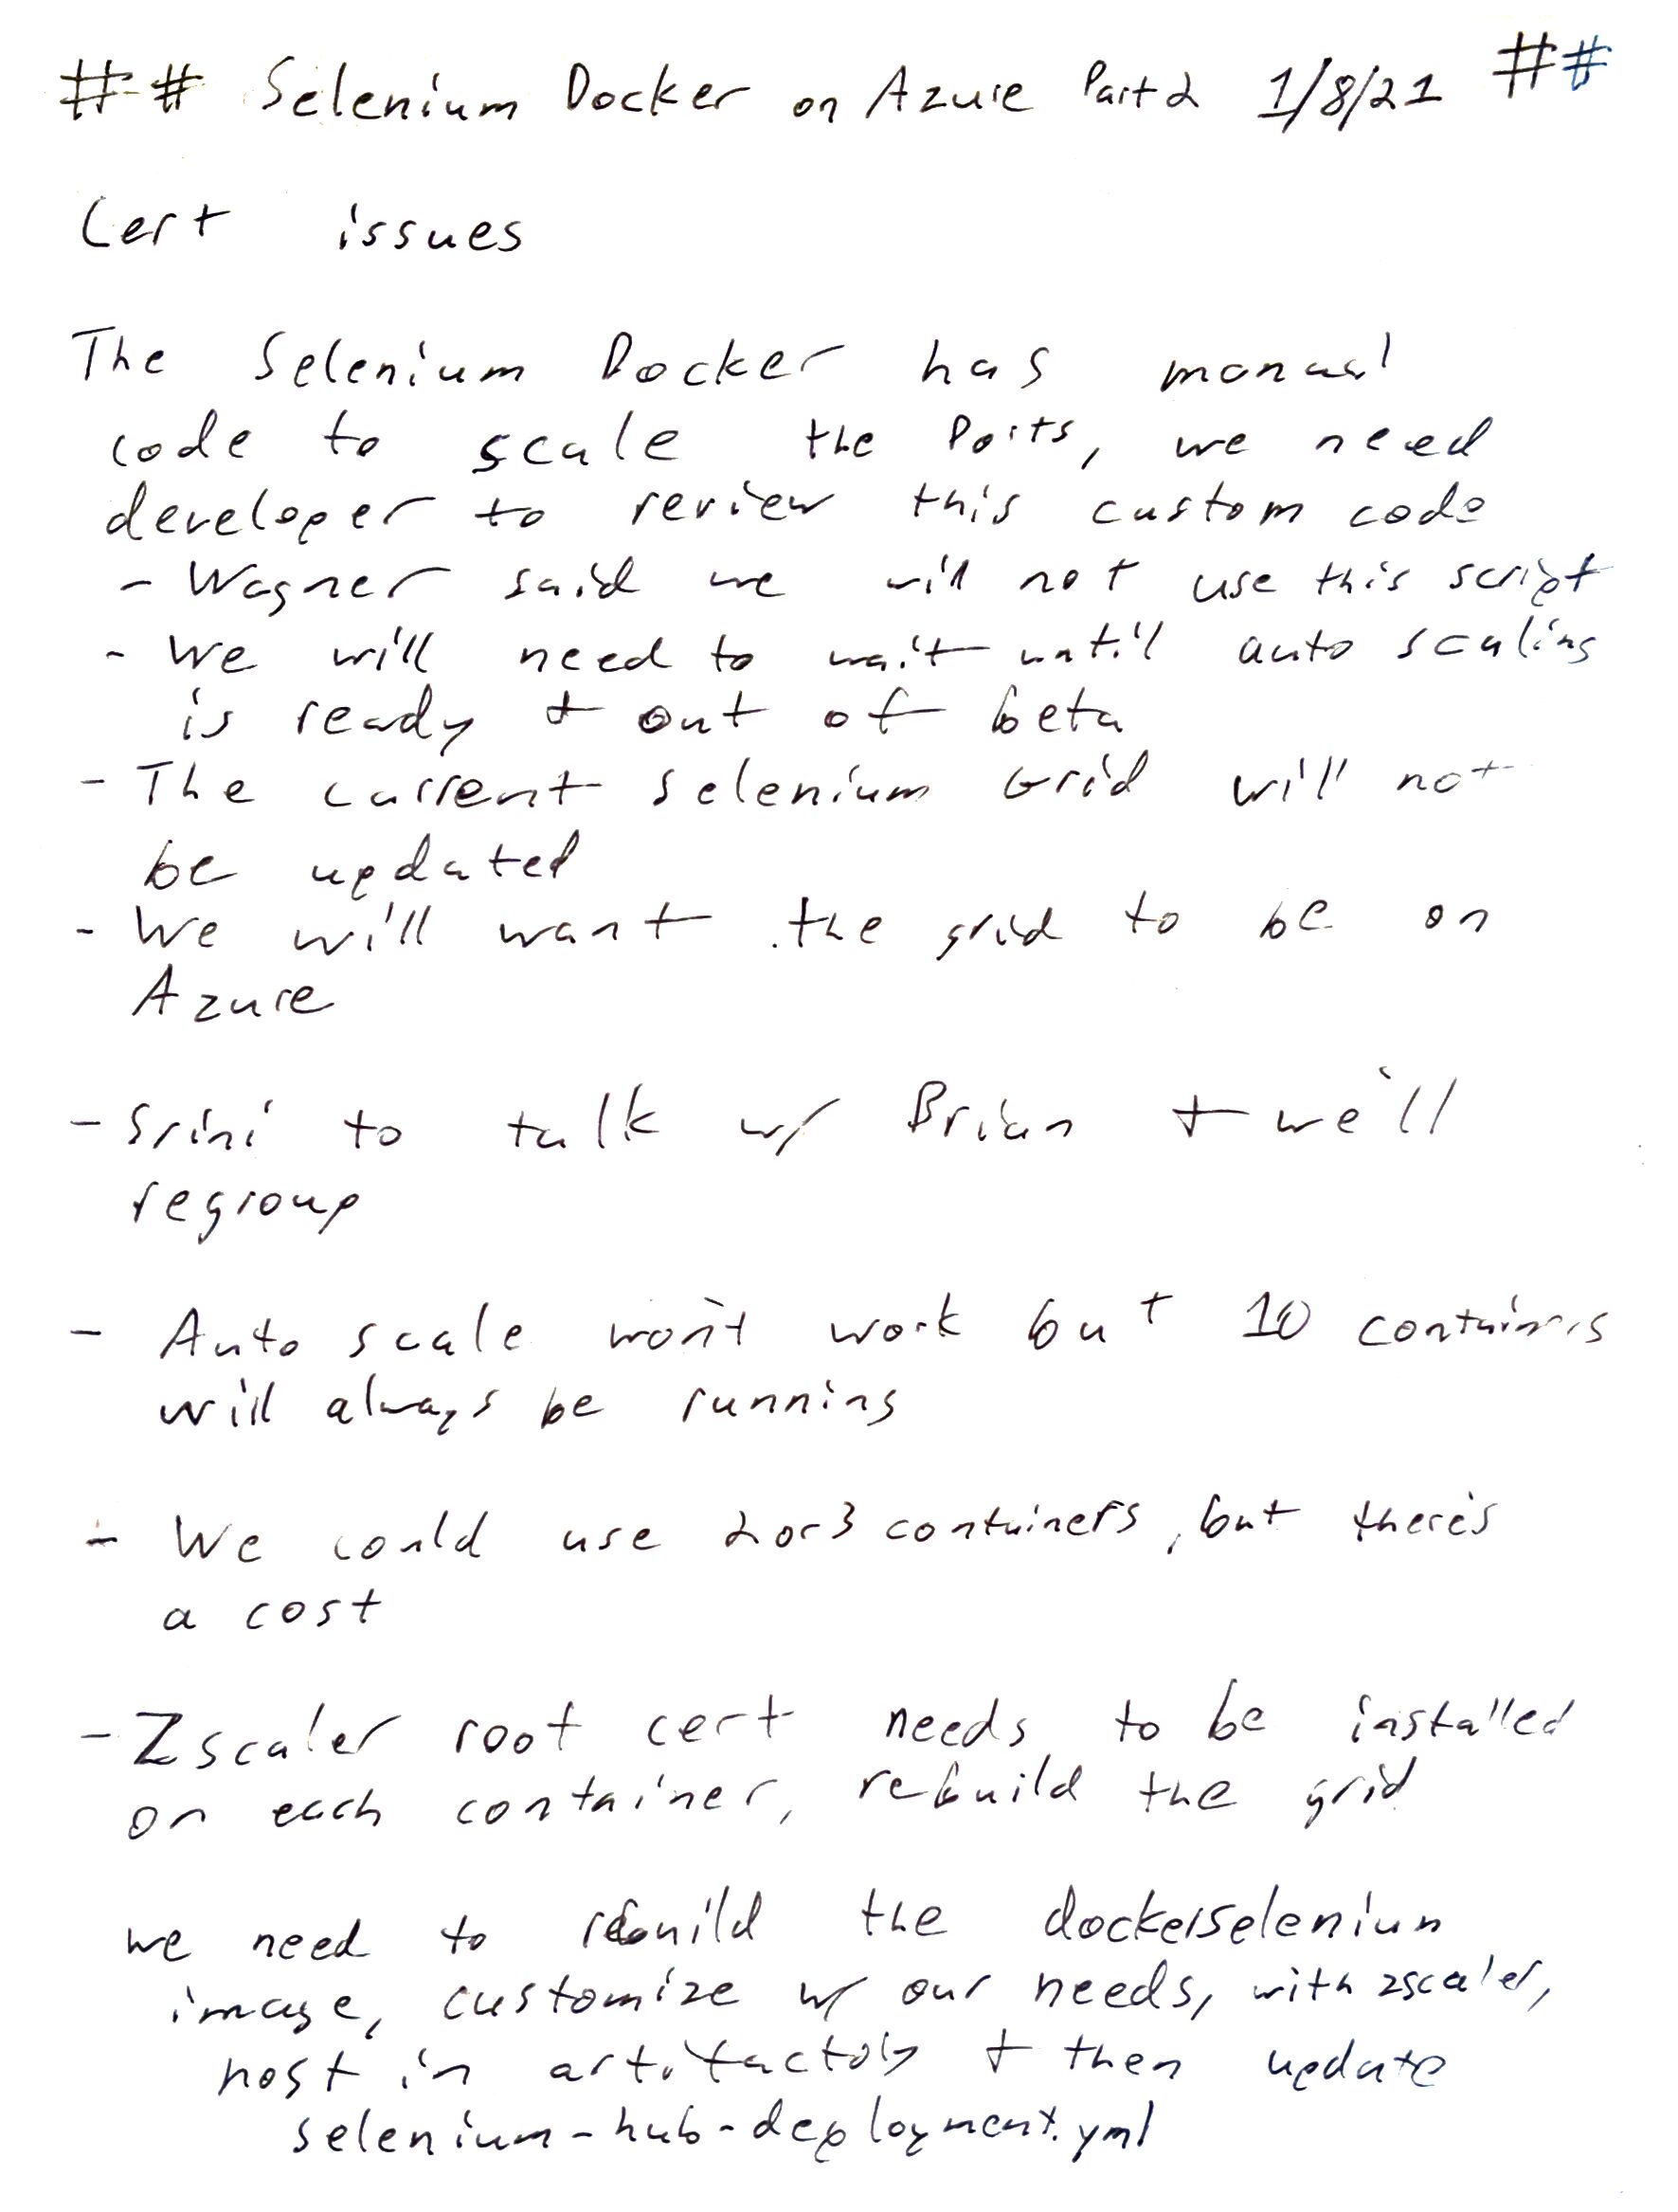 ## Selenium Docker on Azure Part 2 1/8/21 ##
Cert issues
The Selenium Docker has manual
code to scale the Ports, we need
developer to review this custom code
- Wagner said we will not use this script
- We will need to wait until auto scaling
is ready + out of beta
- The current selenium Grid will not
be updated
- We will want the grid to be on
Azure
- Srini to talk w/ Brian + we'll
regroup
- Auto scale won't work but 10 containers
will always be running
- We could use 2 or 3 containers, but there's
a cost
- Zscaler root cert needs to be installed
on each container, rebuild the grid
we need to rebuild the dockerselenium
image, customize w/ our needs, with zscaler,
host in artifactory + then update
selenium-hub-deployment.yml